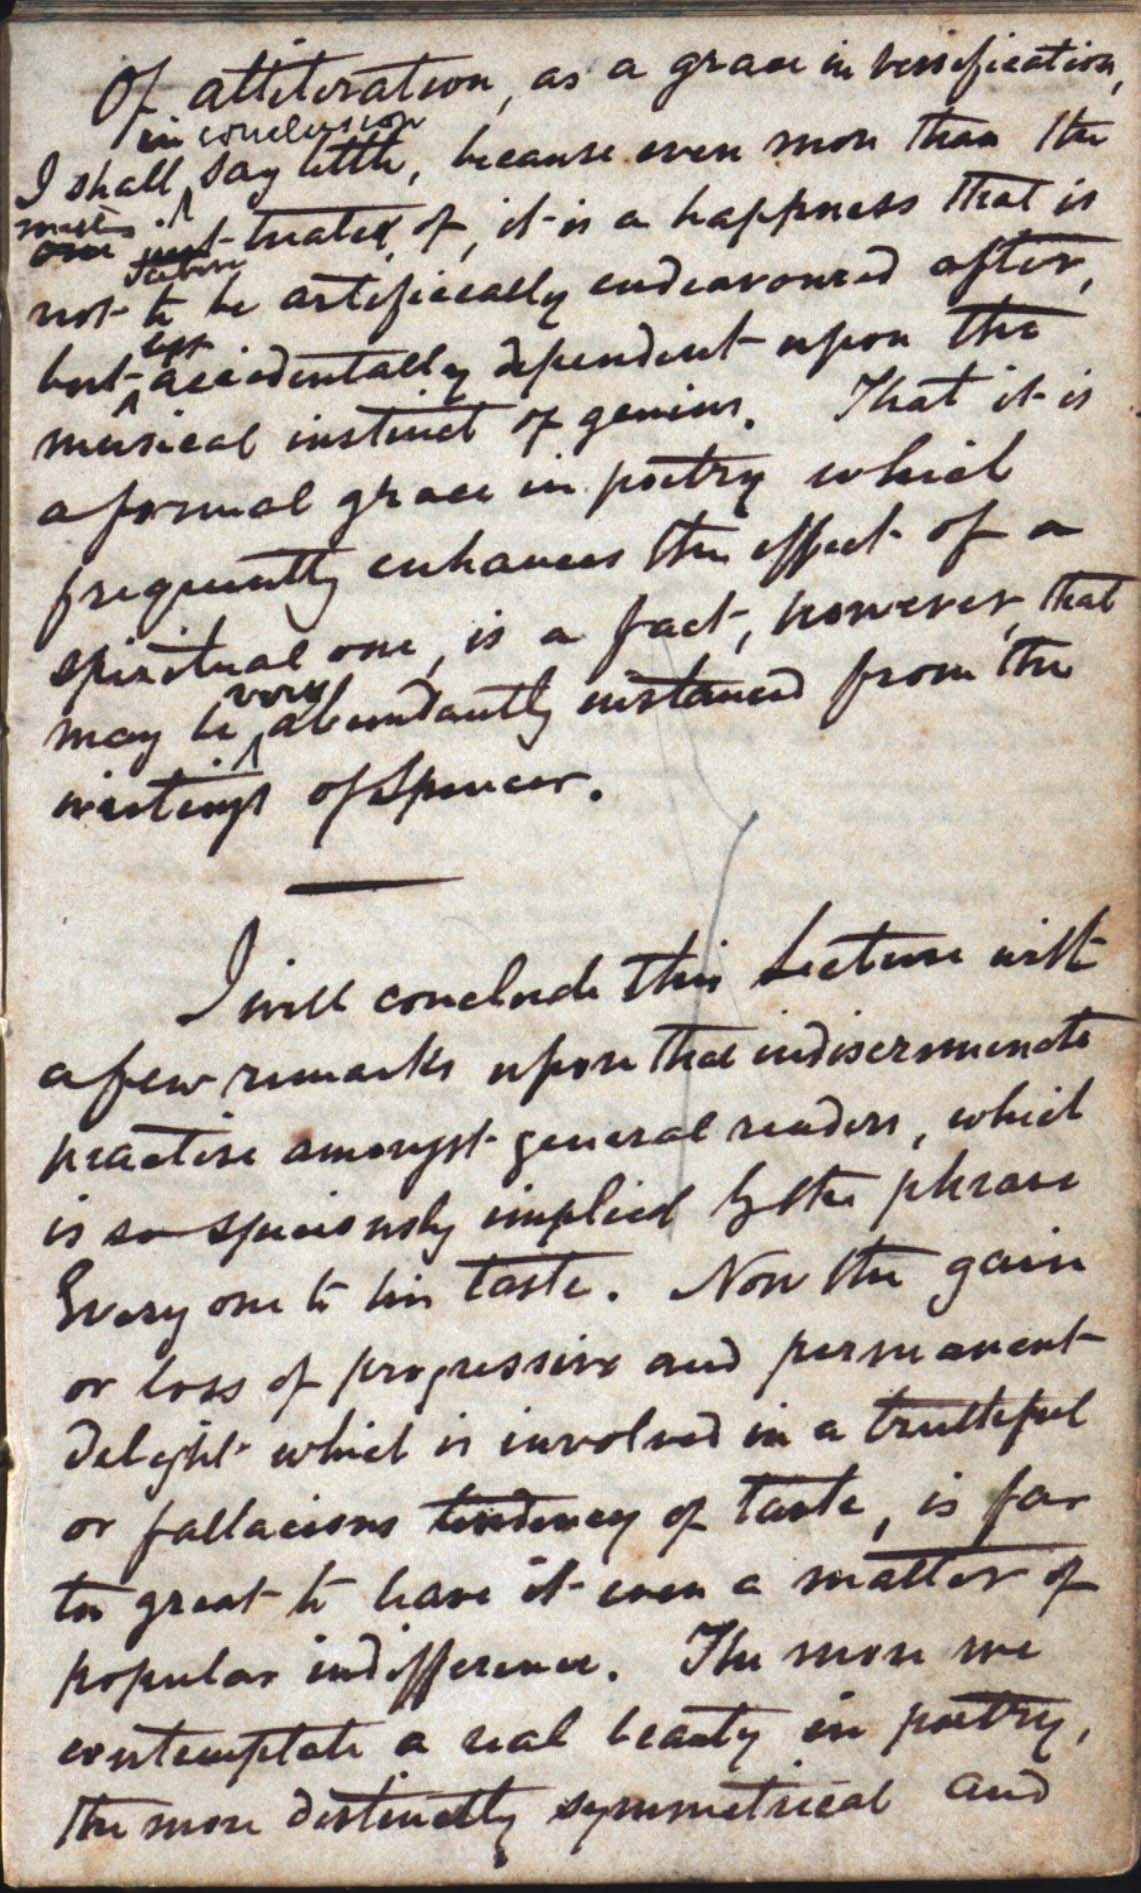 Of alliteration, as a grace in versification,
in conclusion
I shall say little, because even more than the
treated of, it is a happiness that is
not to be artificially endeavoured after,
left
but accidentally dependent upon the
musical instinct of genius. That it is
a formal grace in poetry which
frequently enhances the effect of a
spiritual one, is a fact, however, that
very
may be abundantly instanced from the
writings of Spencer.
I will conclude this Lecture with
a few remarks upon that indiscriminate
practise amongst general readers, which
is so speciously implied by the phrase
Every one to his taste. Now the gain
or loss of progressive and permanent
delight which is involved in a truthful
or fallacious tendency of taste, is far
too great to leave it even a matter of
popular indifference. The more we
contemplate a real beauty in poetry,
the more distinctly symmetrical and